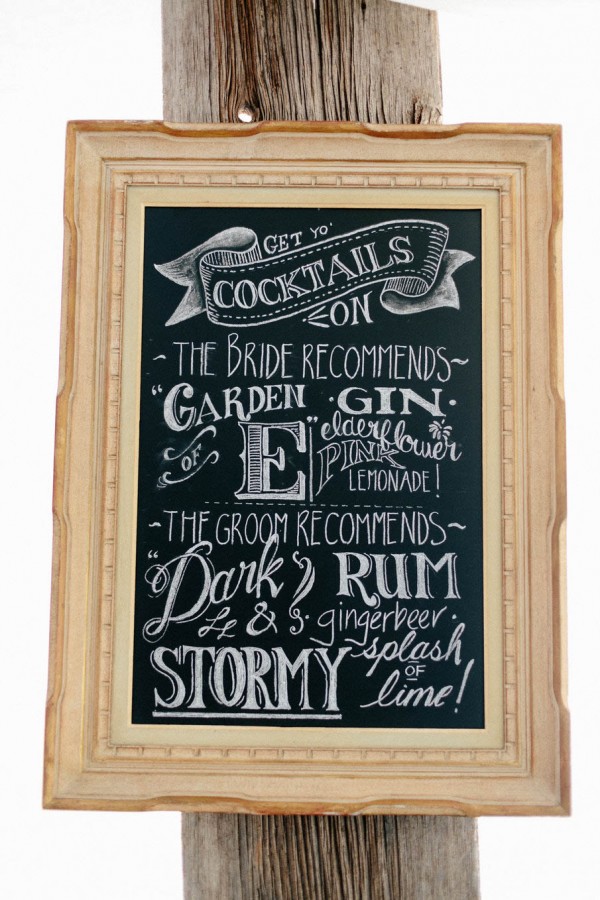 GET YO'
COCKTAILS
ON
~THE BRIDE RECOMMENDS~
"GARDEN
OF
E"
·GIN·
elderflower
PINK
LEMONADE!
~THE GROOM RECOMMENDS~
"Dark
&
STORMY
RUM
gingerbeer·
splash
OF
lime!